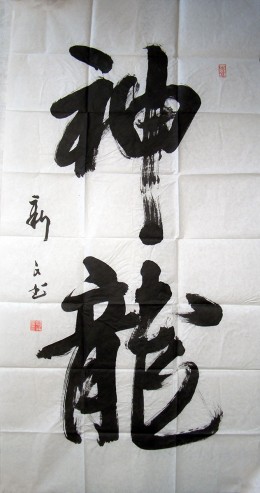 神龍
新文书